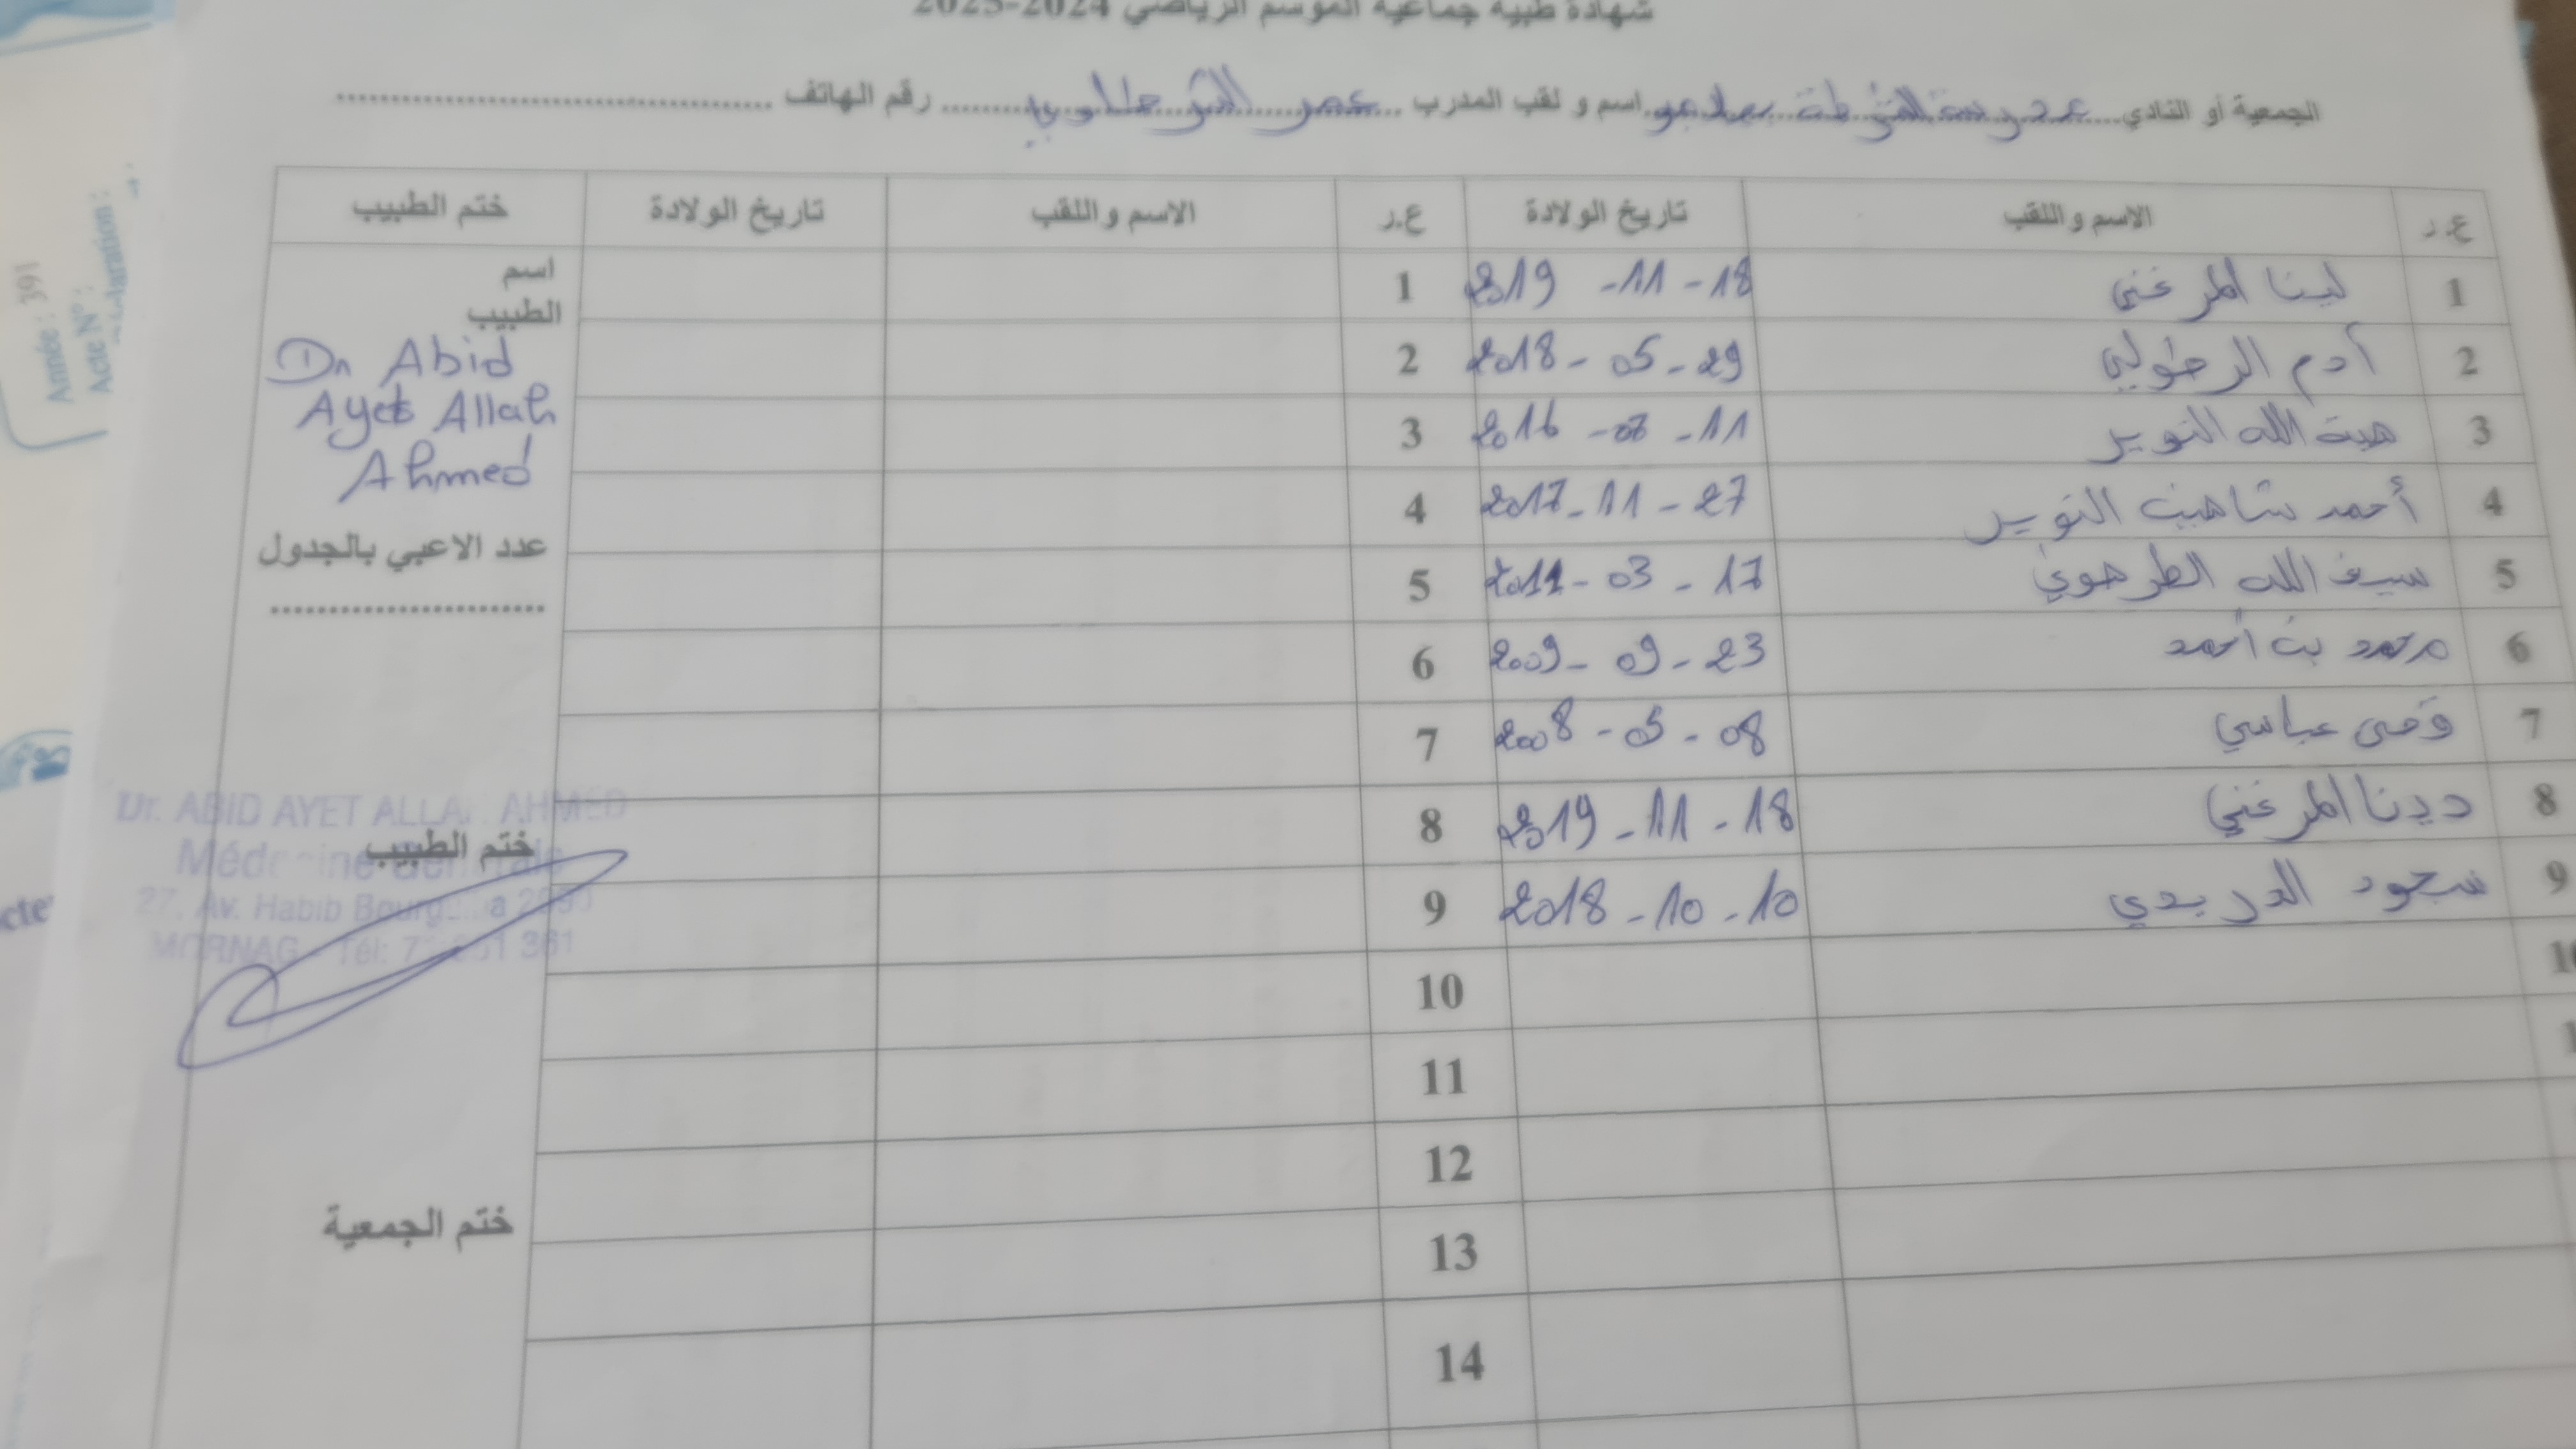 شهادة طبية جماعية الموسم الرياضي 2024-2025
الجمعية أو النادي اسم و لقب المدرب عمر رقم الهاتف
ع.ر الاسم واللقب تاريخ الولادة ع.ر الاسم واللقب تاريخ الولادة ختم الطبيب
1 لينا المرغني 18-11-2019 1
2 آدم 29-05-2018 2
3 هبة الله النوير 11- -2016 3
4 أحمد شاهين النوير 27-11-2017 4
5 سيف الله الطرهوني 17-03-2011 5
6 محمد بن أحمد 23-09-2009 6
7 قصي عباسي 08-05-2008 7
8 دينا المرغني 18-11-2019 8
9 سجود الدريدي 10-10-2018 9
10
11
12
13
14
اسم
الطبيب
Dr Abid
Ayet Allah
Ahmed
عدد الاعبي بالجدول
Dr. ABID AYET ALLAH AHMED
ختم الطبيب
27, Av. Habib
MORNAG - Tél: 7
ختم الجمعية
Année : 391
Acte N° :